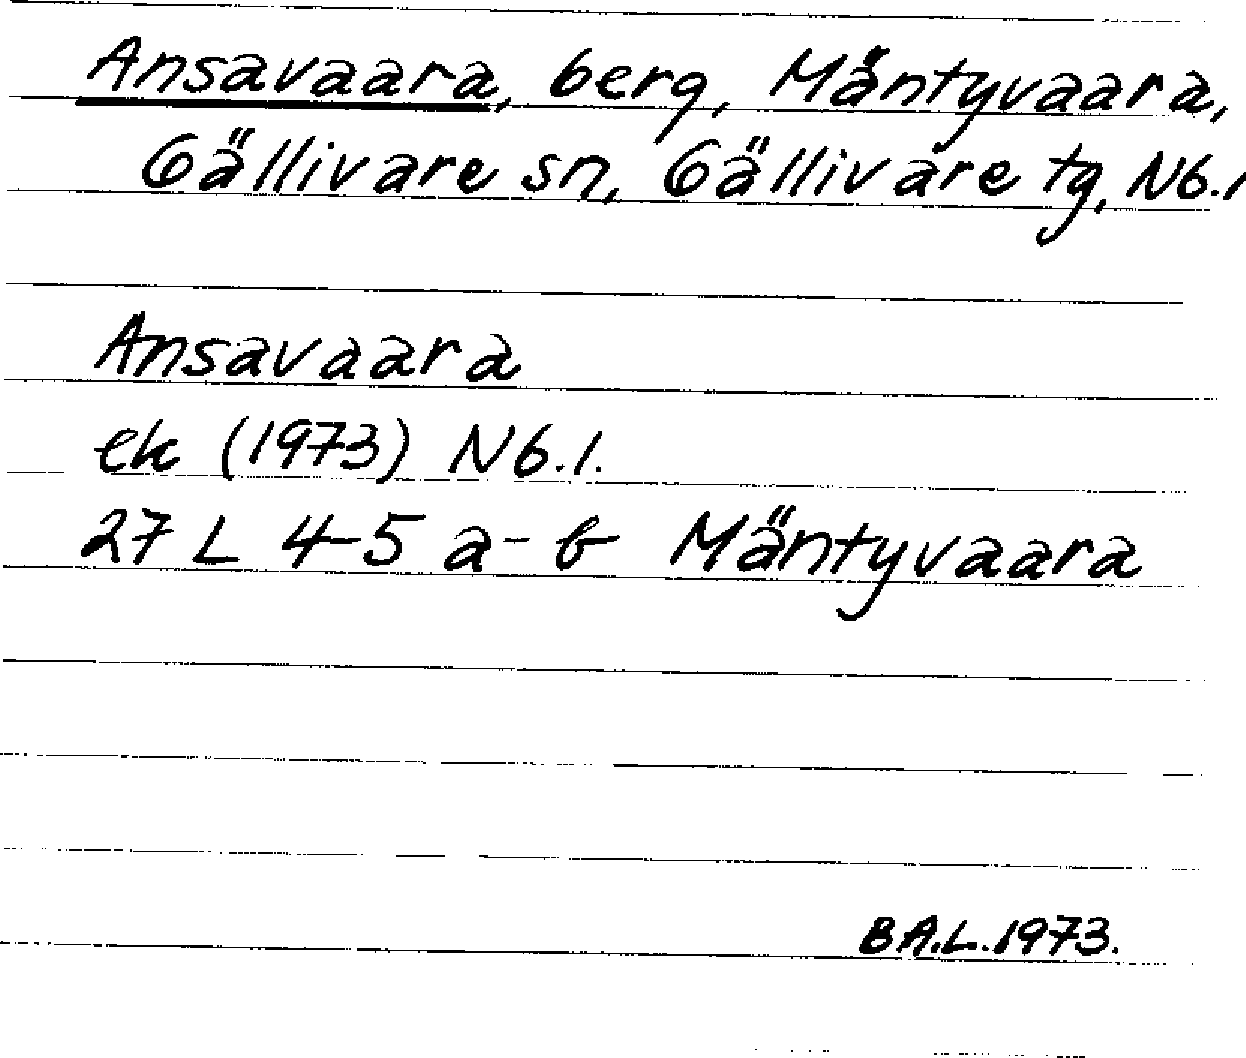 Ansavaara, berg, Mäntyvaara,
Gällivare sn, Gällivare tg, Nb.l
Ansavaara
ek (1973) Nb.l.
27 L 4-5 a-b Mäntyvaara
B A.L. 1973.